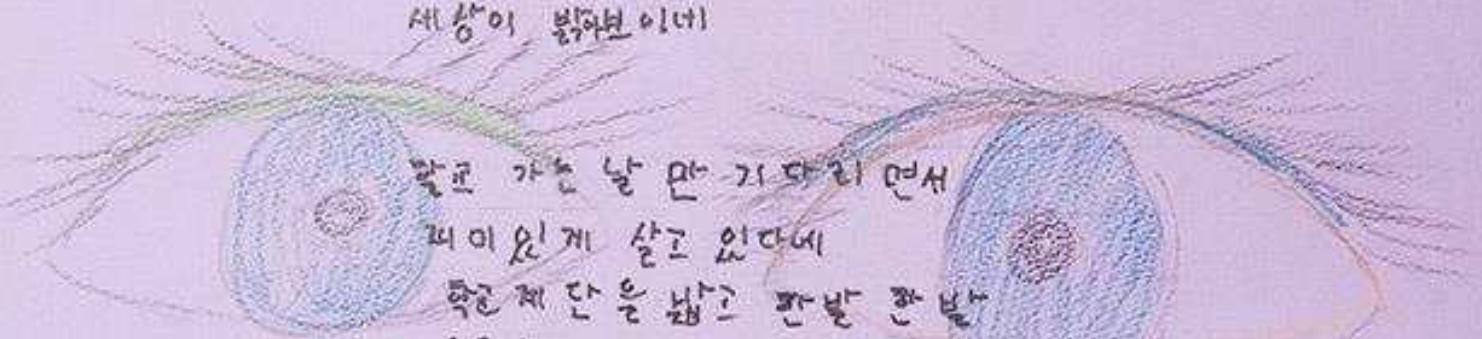 세상이 밝아보이네
학교 가는 날 만 기다리면서
재미있게 살고 있다네
학교 계단을 밟고 한발 한발